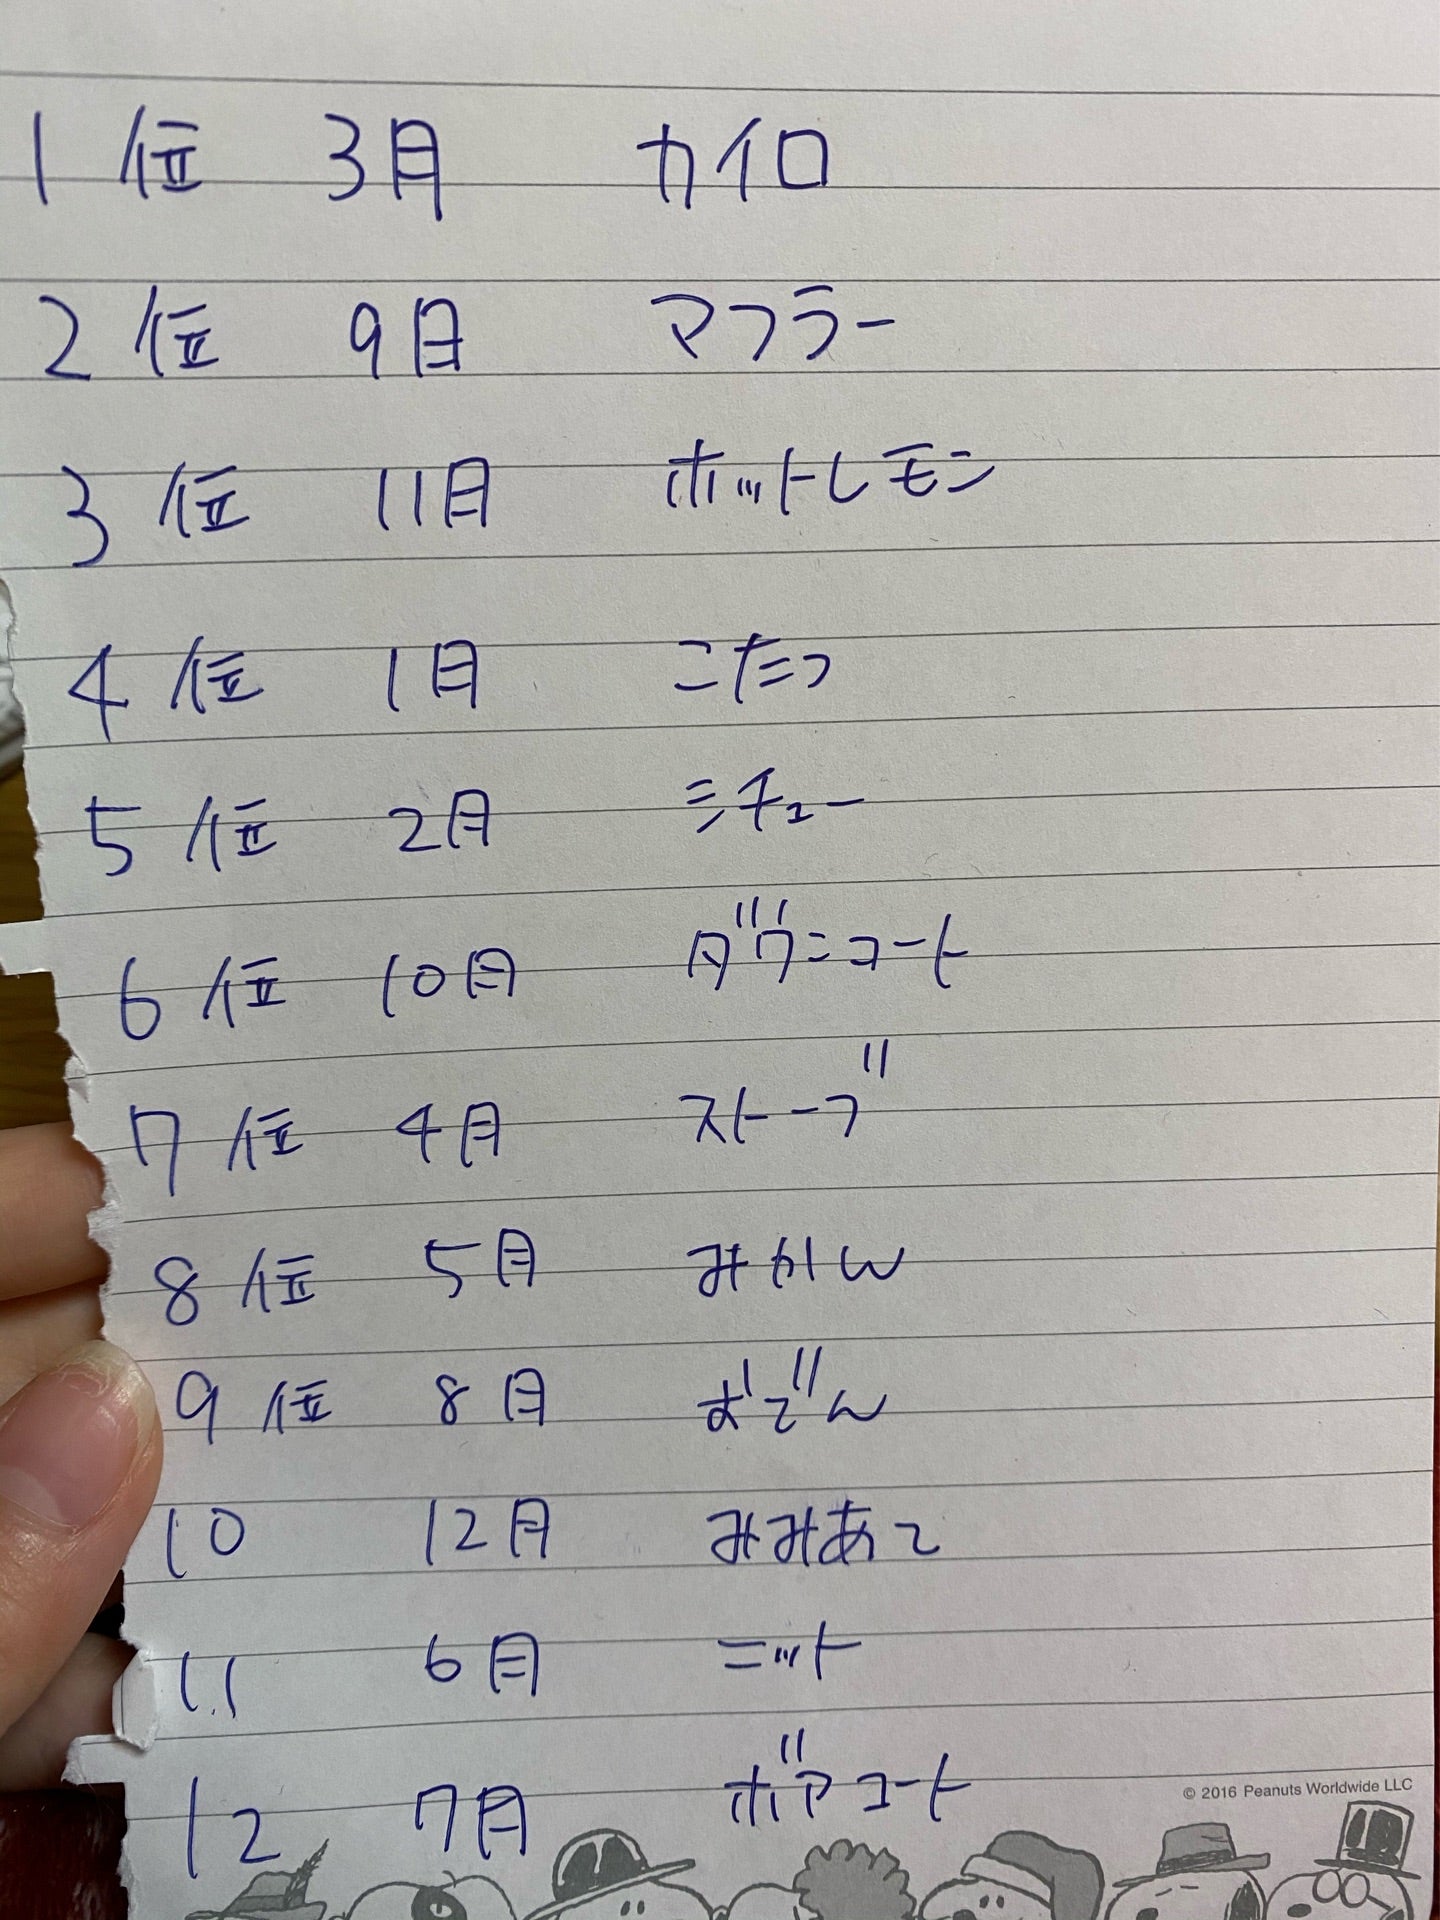 1位 3月 カイロ
2位 9月 マフラー
3位 11月 ホットレモン
4位 1月 こたつ
5位 2月 シチュー
6位 10月 ダウンコート
7位 4月 ストーブ
8位 5月 みかん
9位 8月 おでん
10 12月 みみあて
11 6月 ニット
12 7月 ボアコート
© 2016 Peanuts Worldwide LLC